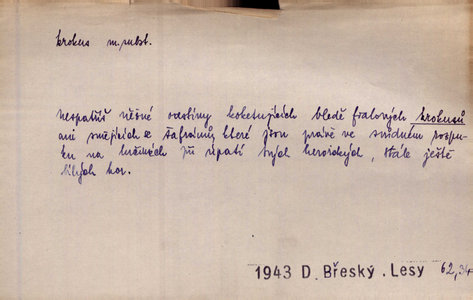 krokus m. subst.
nespatříš něžné rostliny koketujících bledě fialových krokusů
ani smějících se šafránů, které jsou právě ve svůdném rozpu-
ku na lučinách při úpatí těch heroických, stále ještě
bílých hor.
1943 D. Břeský. Lesy 62,34